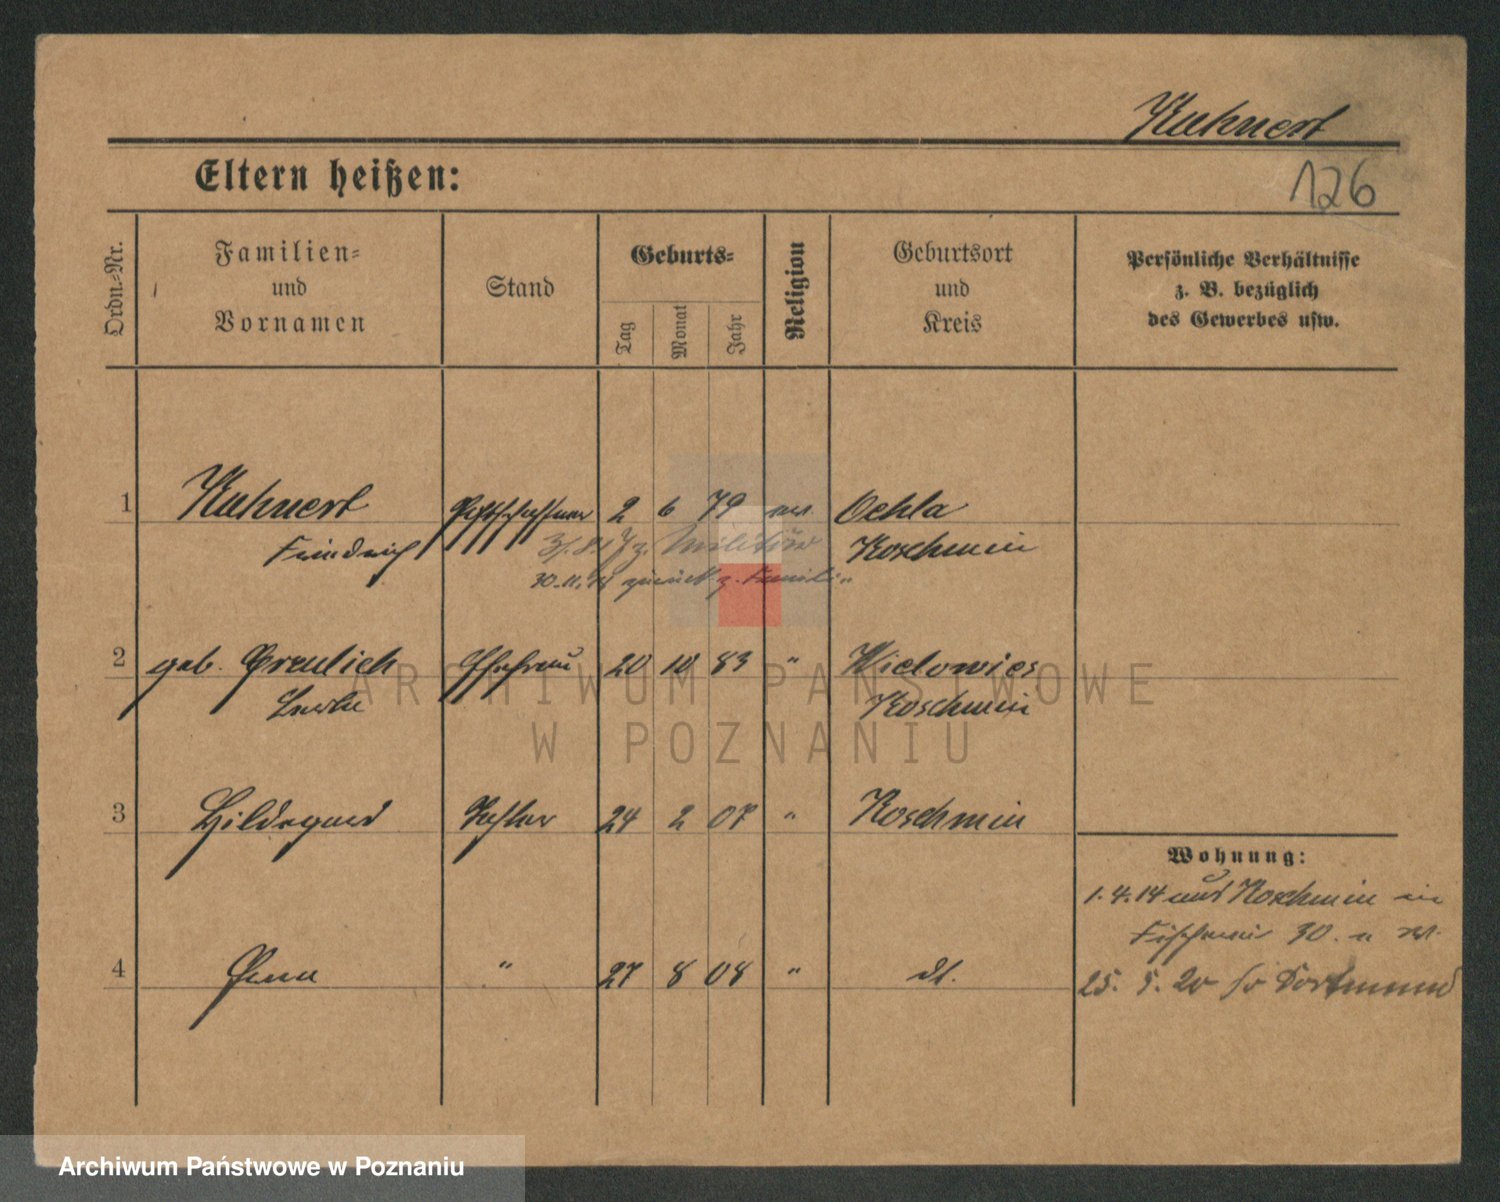 Kuhnert
Eltern heißen:
126
Ordn.-Nr.
Familien-
und
Vornamen
Stand
Geburts-
Tag
Monat
Jahr
Religion
Geburtsort
und
Kreis
Persönliche Verhältnisse
z. B. bezüglich
des Gewerbes usw.
1 Kuhnert 2 6 79 ev. Ochla
Friedrich Koschmin
z. Militär
30.11.18 zurück z. Familie
2 geb. Greulich Ehefrau 20 10 83 " Wielowies
Koschmin
3 Hildegard Tochter 24 2 07 " Koschmin
4 " 27 8 08 " dt.
Wohnung:
1.4.14 aus Koschmin in
30.
25. 5. 20 Dortmund
ARCHIWUM PAŃSTWOWE
W POZNANIU
Archiwum Państwowe w Poznaniu